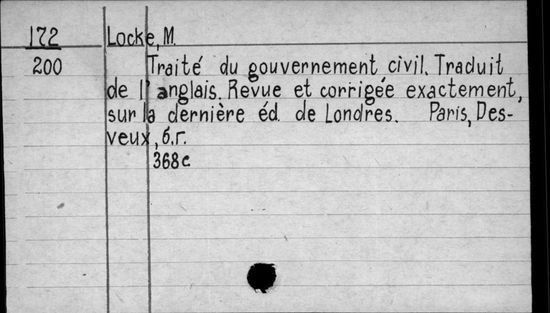 172 Locke, M.
200 Traité du gouvernement civil. Traduit
de l'anglais. Revue et corrigée exactement,
sur la dernière éd. de Londres. Paris, Des-
veux, б.г.
368 с.